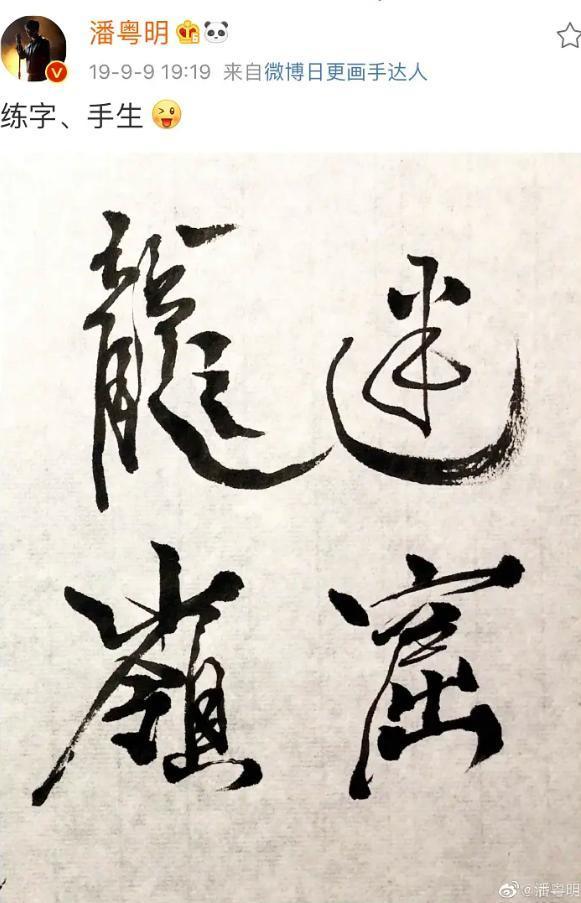 潘粤明
19-9-9 19:19 来自微博日更画手达人
练字、手生
龍嶺
迷窟
@潘粤明